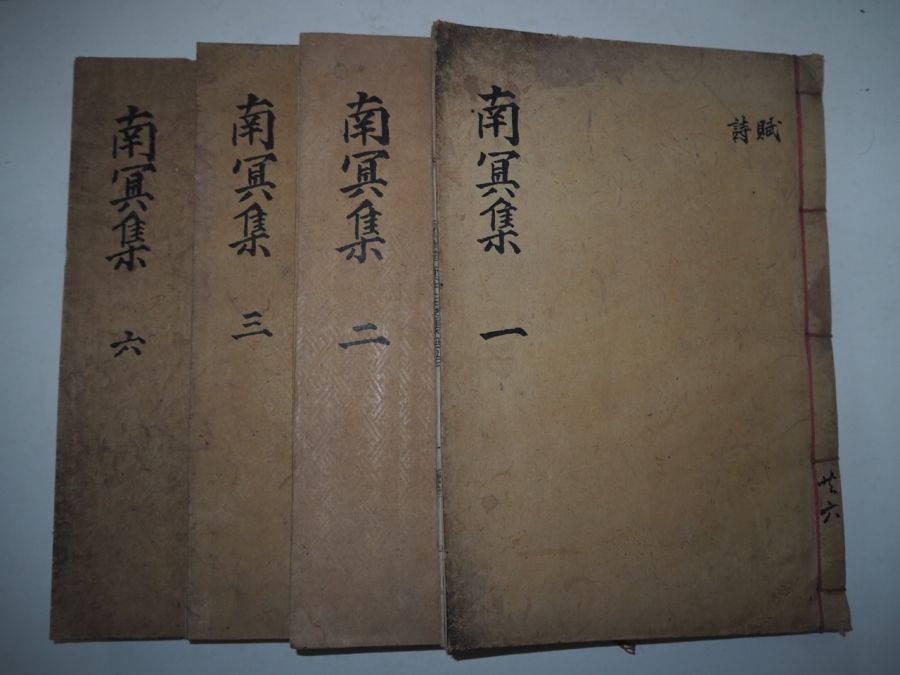 共六
賦
詩
南冥集 一
南冥集 二
南冥集 三
南冥集 六